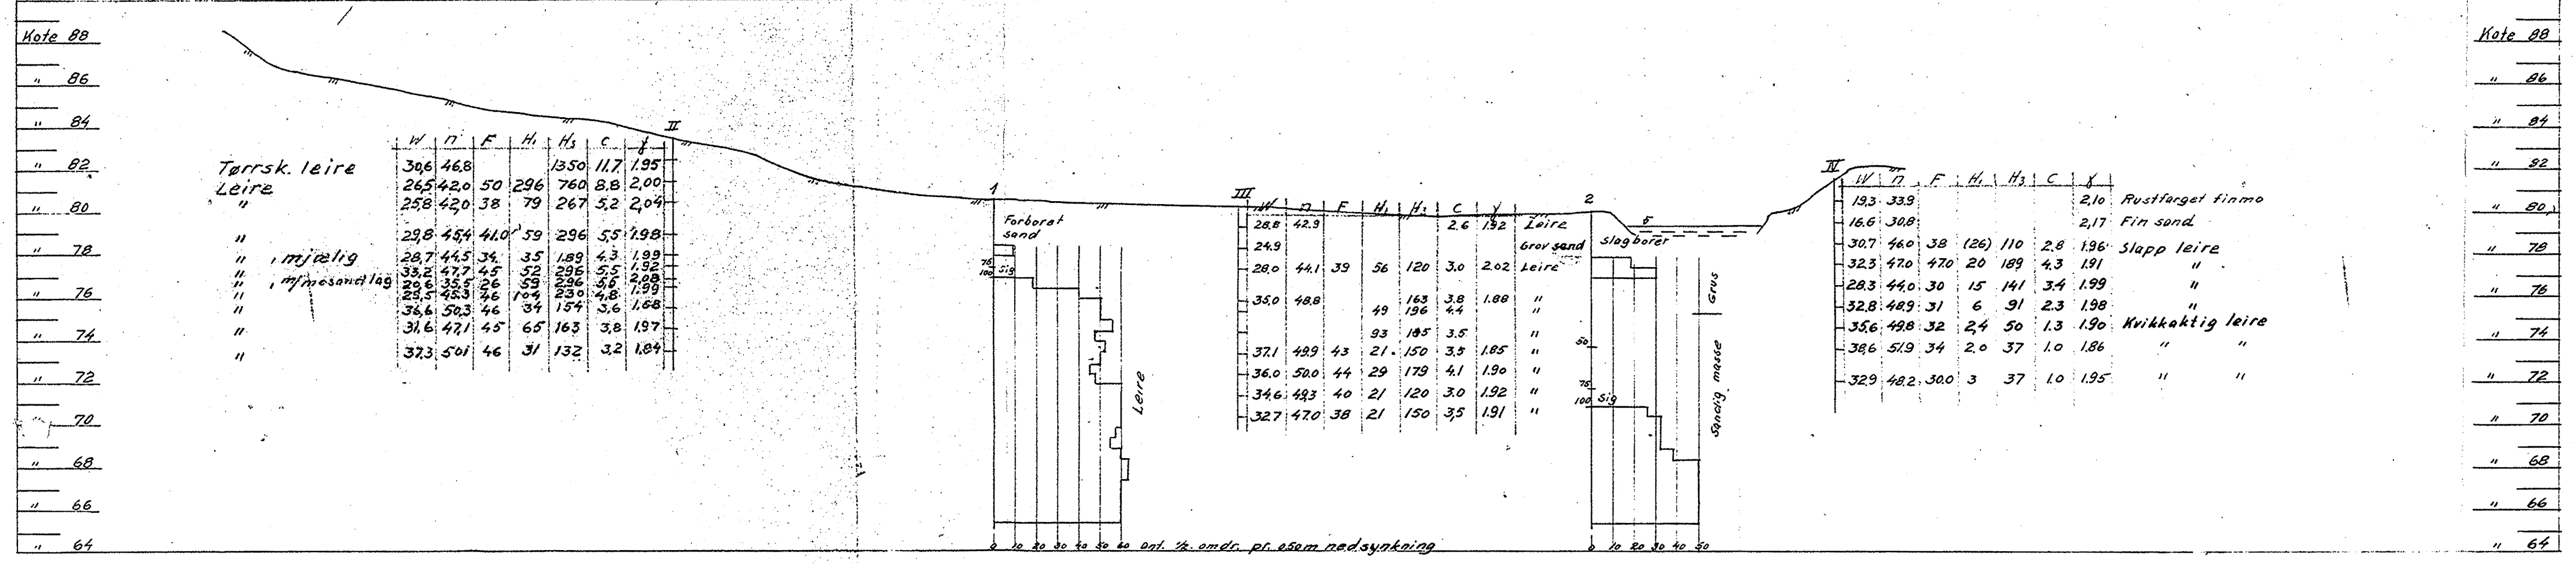 Kote 88
" 86
" 84
" 82
" 80
" 78
" 76
" 74
" 72
" 70
" 68
" 66
" 64
II
W n F H₁ H₃ C γ
Tørrsk. leire 30,6 46,8 1350 11.7 1.95
Leire 26,5 42,0 50 296 760 8.8 2,00
" 25,8 42,0 38 79 267 5,2 2,04
" 29,8 45,4 41.0 59 296 5,5 1.98
" , mjælig 28,7 44,5 34 35 189 4.3 1.99
" 33,2 47,7 45 52 296 5,5 1.92
" , m/mosandlag 20,6 35,5 26 59 296 5,6 2,08
" 29,5 45,3 46 104 230 4,8 1.99
" 36,6 50,3 46 34 154 3,6 1.88
" 31,6 47,1 45 65 163 3,8 1,97
" 37,3 50,1 46 31 132 3,2 1,84
1
Forboret
sand
75
100 Sig
Leire
0 10 20 30 40 50 60 Ant. ½ omdr. pr. 0.50m nedsynkning
III
W n F H₁ H₃ C γ
28.8 42.9 2.6 1.92 Leire
24.9 Grov sand
28,0 44,1 39 56 120 3.0 2.02 Leire
35,0 48,8 163 3.8 1.88 "
49 196 4.4 "
93 185 3.5 "
37.1 49.9 43 21 150 3,5 1.85 "
36.0 50.0 44 29 179 4.1 1.90 "
34,6 49,3 40 21 120 3.0 1.92 "
32,7 47.0 38 21 150 3,5 1.91 "
2
Slagboret
50
75
100 Sig
Grus
Sandig masse
0 10 20 30 40 50
5
IV
W n F H₁ H₃ C γ
19,3 33,9 2,10 Rustfarget finmo
16.6 30,8 2,17 Fin sand
30,7 46.0 38 (26) 110 2.8 1.96 Slapp leire
32,3 47.0 47.0 20 189 4.3 1.91 "
28.3 44,0 30 15 141 3.4 1.99 "
32,8 48,9 31 6 91 2.3 1.98 "
35,6 49,8 32 2,4 50 1.3 1.90 Kvikkaktig leire
38,6 51.9 34 2.0 37 1.0 1.86 " "
32,9 48,2 30.0 3 37 1.0 1.95 " "
Kote 88
" 86
" 84
" 82
" 80
" 78
" 76
" 74
" 72
" 70
" 68
" 66
" 64